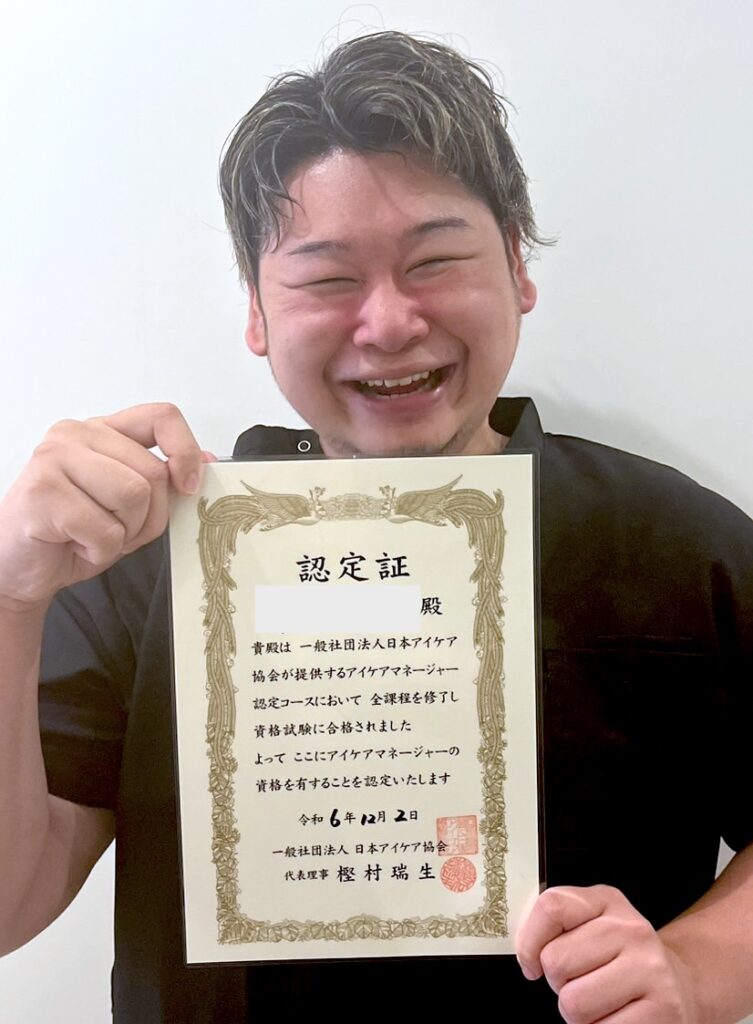 認定証
殿
貴殿は 一般社団法人日本アイケア
協会が提供するアイケアマネージャー
認定コースにおいて 全課程を修了し
資格試験に合格されました
よって ここにアイケアマネージャーの
資格を有することを認定いたします
令和 6年 12月 2日
一般社団法人 日本アイケア協会
代表理事 樫村瑞生